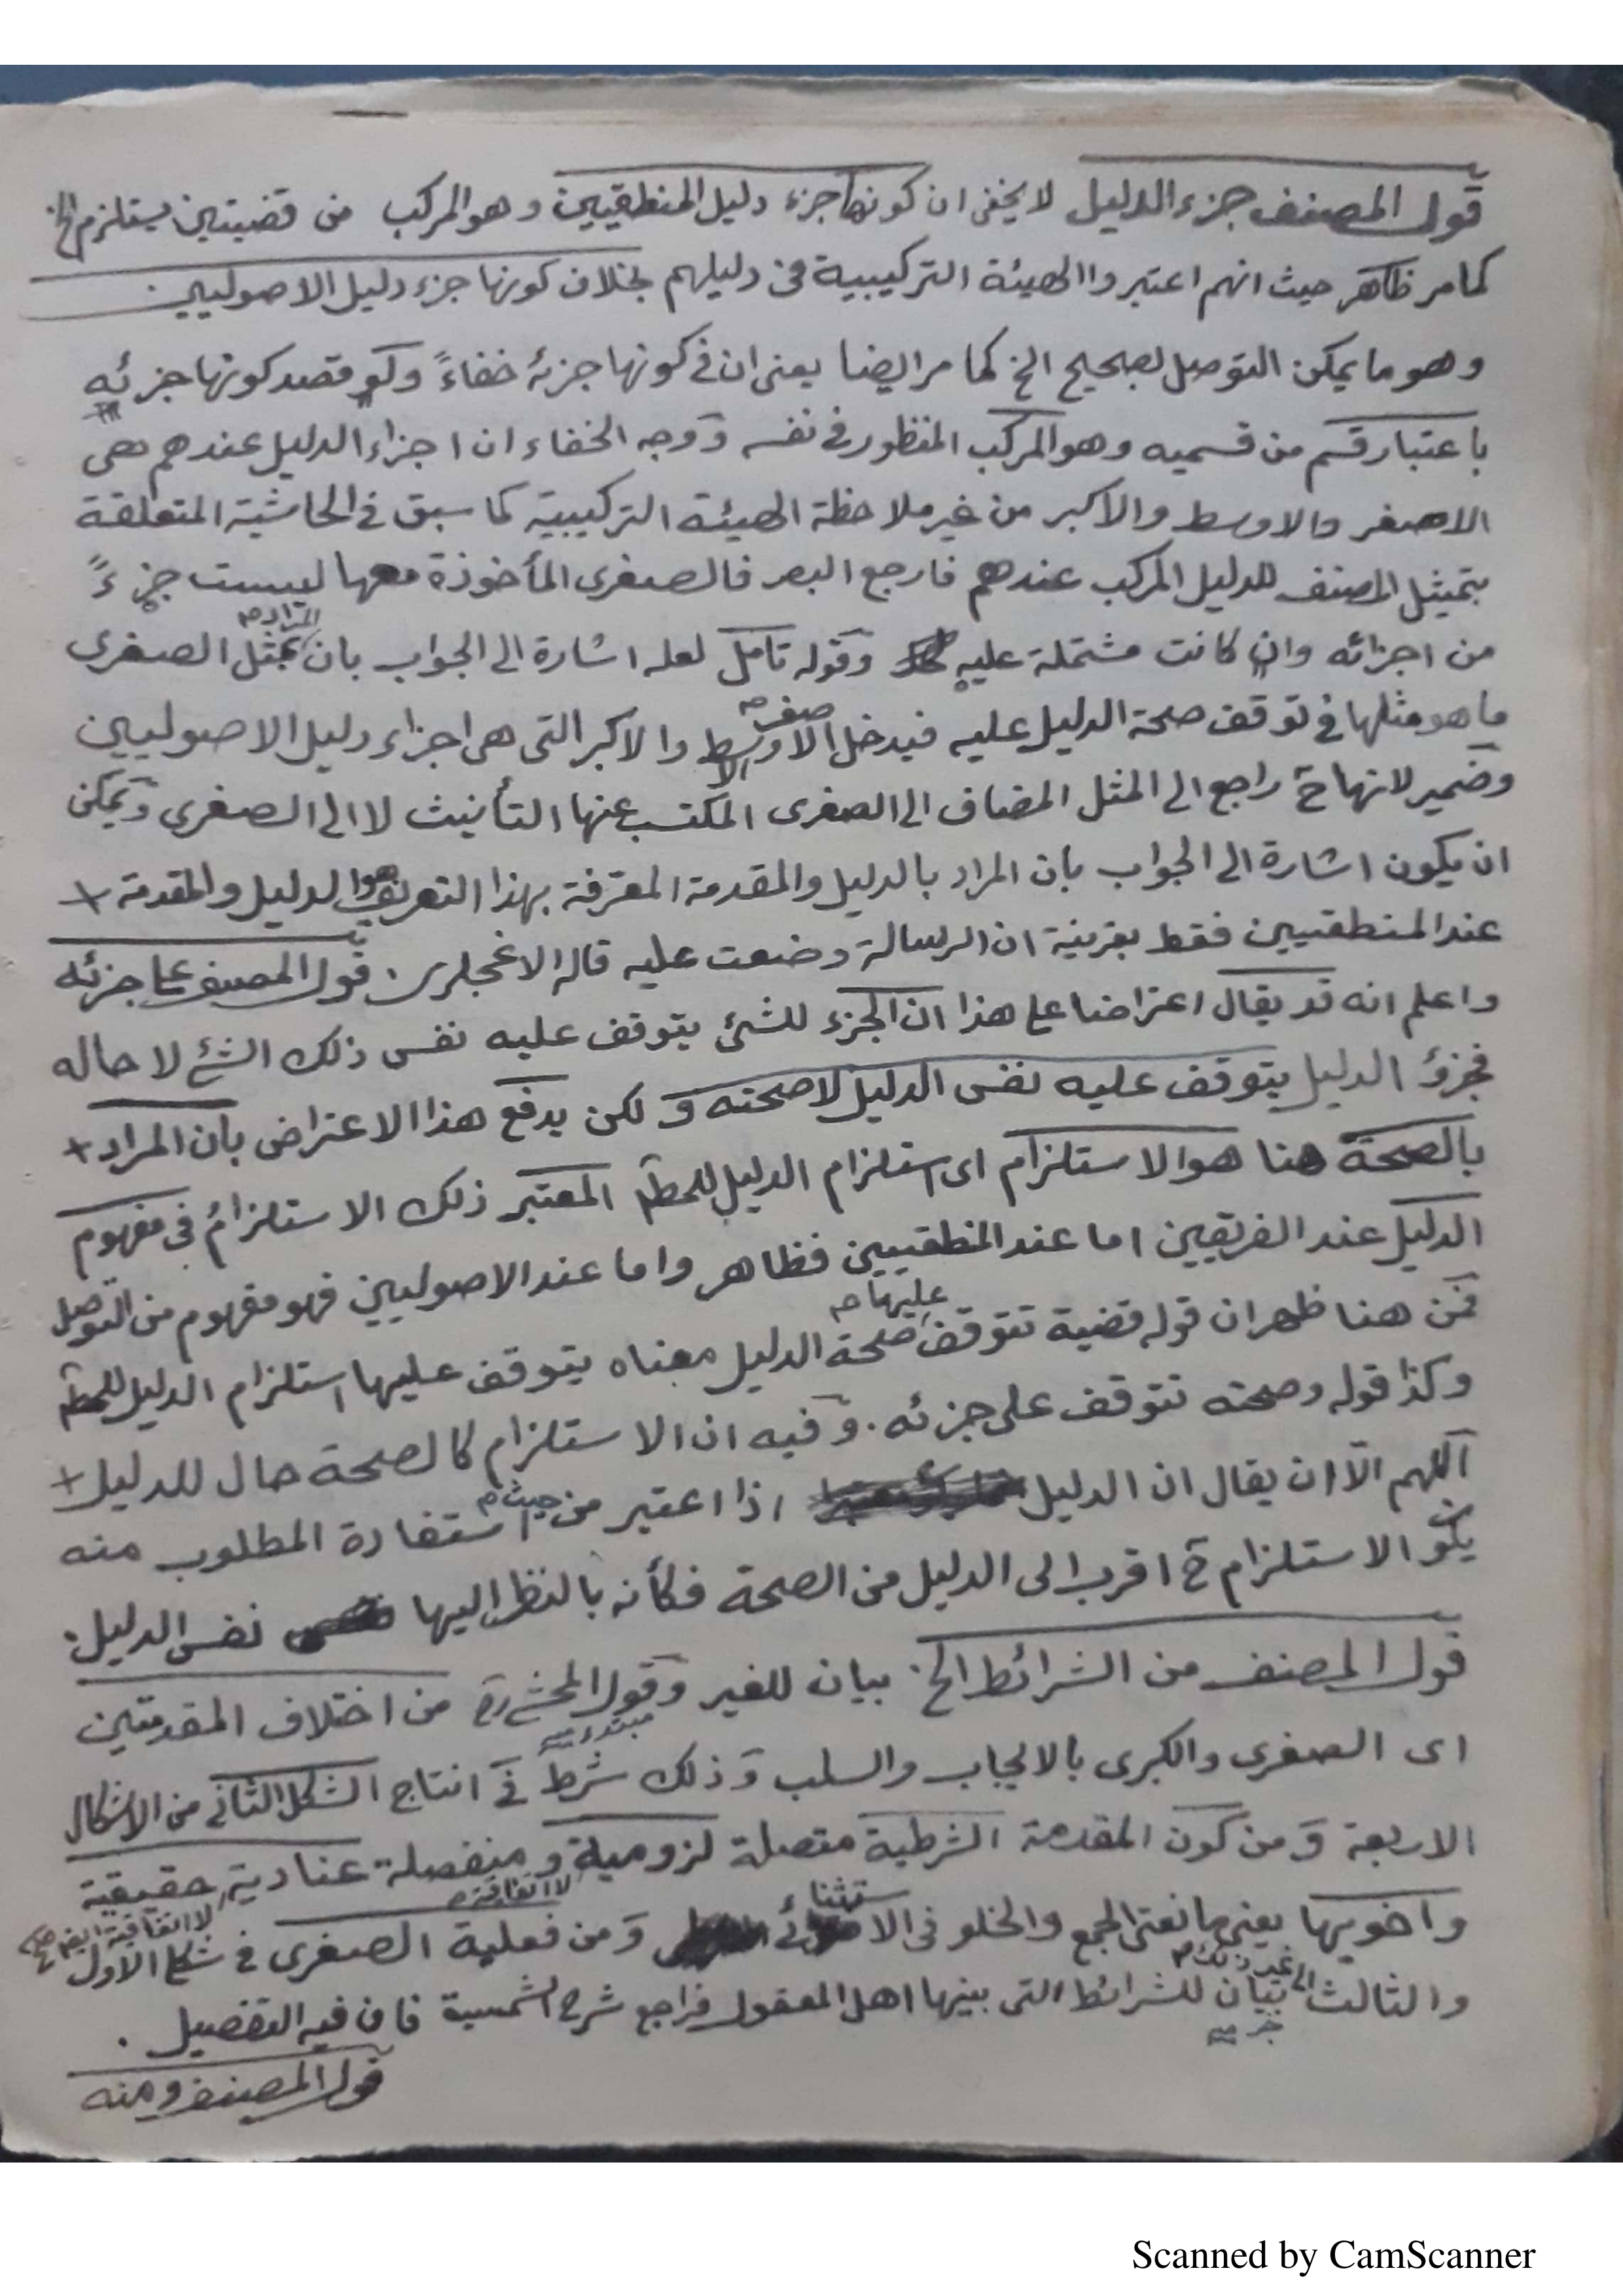 قول المصنف جزء الدليل لا يخفى ان كونها جزء دليل المنطقيين وهو المركب من قضيتين يستلزم الخ
كما مر ظاهر حيث انهم اعتبروا الهيئة التركيبية فى دليلهم بخلاف كونها جزء دليل الاصوليين
وهو ما يمكن التوصل بصحيح الخ كما مر ايضا يعنى ان فى كونها جزئه خفاءً ولو قصد كونها جزئه
باعتبار قسم من قسميه وهو المركب المنظور فى نفسه ووجه الخفاء ان اجزاء الدليل عندهم هى
الاصغر والاوسط والاكبر من غير ملاحظة الهيئة التركيبية كما سبق فى الحاشية المتعلقة
بتمثيل المصنف للدليل المركب عندهم فارجع البصر فالصغرى المأخوذة معها ليست جزءً
من اجزائه وان كانت مشتملة عليه وقوله تأمل لعله اشارة الى الجواب بان المراد بمثل الصغرى
ما هو مثلها فى توقف صحة الدليل عليه فيدخل الاصغر والاوسط والاكبر التى هى اجزاء دليل الاصوليين
وضمير لانها ح راجع الى المثل المضاف الى الصغرى المكتسب عنها التأنيث لا الى الصغرى ويمكن
ان يكون اشارة الى الجواب بان المراد بالدليل والمقدمة المعرّفة بهذا التعريف هو الدليل والمقدمة +
عند المنطقيين فقط بقرينة ان الرسالة وضعت عليه قاله الاغجلرى . قول المصنف على جزئه
واعلم انه قد يقال اعتراضا على هذا ان الجزء للشئ يتوقف عليه نفس ذلك الشئ لا حاله
فجزؤ الدليل يتوقف عليه نفس الدليل لا صحته و لكن يدفع هذا الاعتراض بان المراد +
بالصحة هنا هو الاستلزام اى استلزام الدليل للمط المعتبر ذلك الاستلزام فى مفهوم
الدليل عند الفريقين اما عند المنطقيين فظاهر واما عند الاصوليين فهو مفهوم من التوصل
فمن هنا ظهر ان قوله قضية تتوقف عليها صحة الدليل معناه يتوقف عليها استلزام الدليل للمط
وكذا قوله وصحته تتوقف على جزئه . وفيه ان الاستلزام كالصحة حال للدليل +
اللهم الّا ان يقال ان الدليل اذا اعتبر من حيث استفادة المطلوب منه
يكون الاستلزام ح اقرب الى الدليل من الصحة فكأنه بالنظر اليها نفس الدليل .
قول المصنف من الشرائط الخ . بيان للغير وقول المحشى من اختلاف المقدمتين مبتدء
اى الصغرى والكبرى بالايجاب والسلب وذلك شرط فى انتاج الشكل الثانى من الاشكال
الاربعة و من كون المقدمة الشرطية متصلة لزومية لا اتفاقية و منفصلة عنادية لا اتفاقية حقيقية
واخويها يعنى مانعتى الجمع والخلو فى الاستثنائى و من فعلية الصغرى فى شكل الاول
والثالث الى غير ذلك بيان للشرائط التى بينها اهل المعقول فراجع شرح الشمسية فان فيه التفصيل .
خبر
قول المصنف ومنه
Scanned by CamScanner